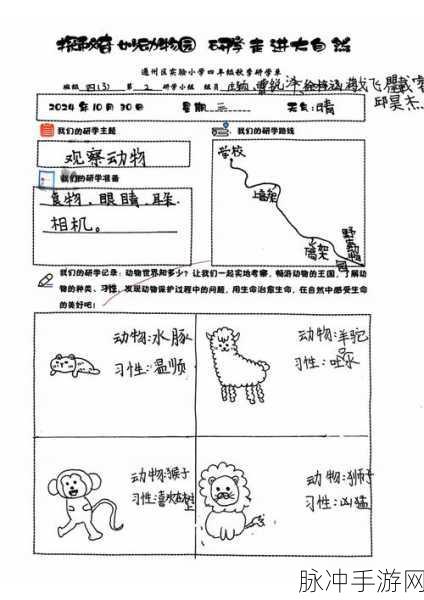 探秘奇妙动物园 研学走进大自然
通州区实验小学四年级秋季研学单
班级 四(3) 第 2 研学小组 组员
邱昊杰
2024年10月30日 星期 三 天气:晴
我们的研学主题
观察动物
我们的研学路线
学校
野生动物园
我们的研学准备
食物、眼睛、耳朵、
相机。
我们的研学记录:动物世界知多少?让我们一起实地考察,畅游动物的王国,了解动
物的种类、习性,发现动物保护过程中的问题,用生命治愈生命,在自然中感受生命
的美好吧!
动物:水豚
习性:温顺
动物:羊驼
习性:吐口水
动物:猴子
习性:喜欢
动物:狮子
习性:凶猛
脉冲手游网